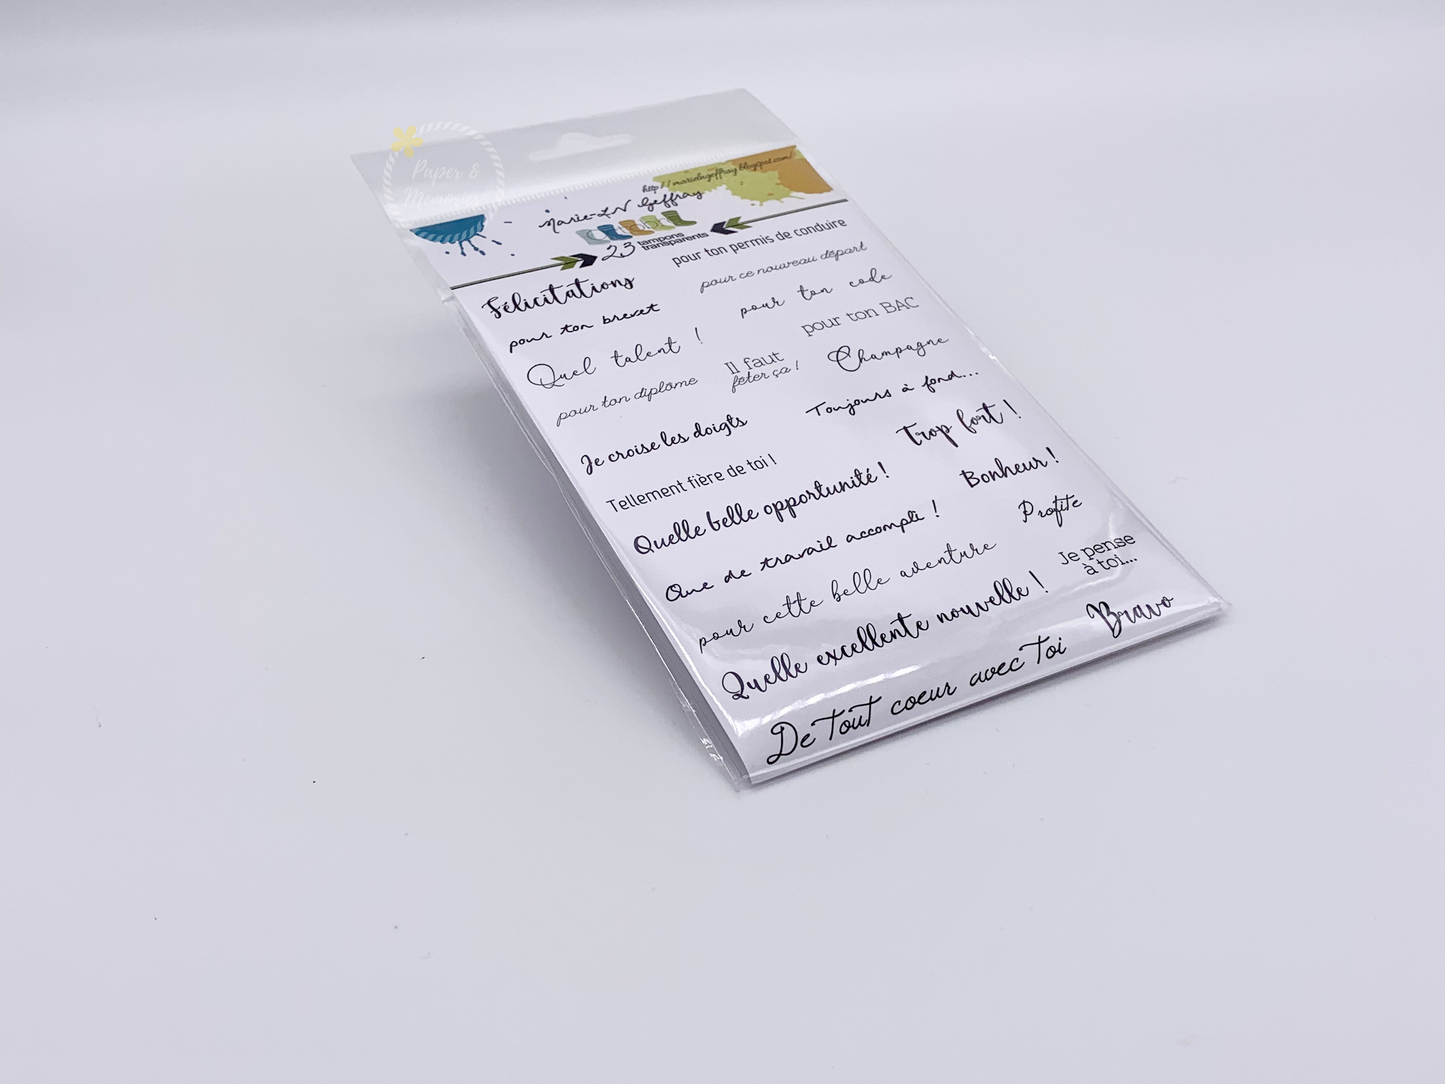 Paper &
Memories
http://marielngeffray.blogspot.com/
Marie-LN Geffray
23 tampons
transparents
pour ton permis de conduire
Félicitations
pour ce nouveau départ
pour ton brevet
pour ton code
Quel talent !
pour ton BAC
pour ton diplôme
Il faut
fêter ça !
Champagne
Je croise les doigts
Toujours à fond...
Tellement fière de toi !
Trop fort !
Quelle belle opportunité !
Bonheur !
Que de travail accompli !
Profite
pour cette belle aventure
Je pense
à toi...
Quelle excellente nouvelle !
Bravo
De tout coeur avec toi